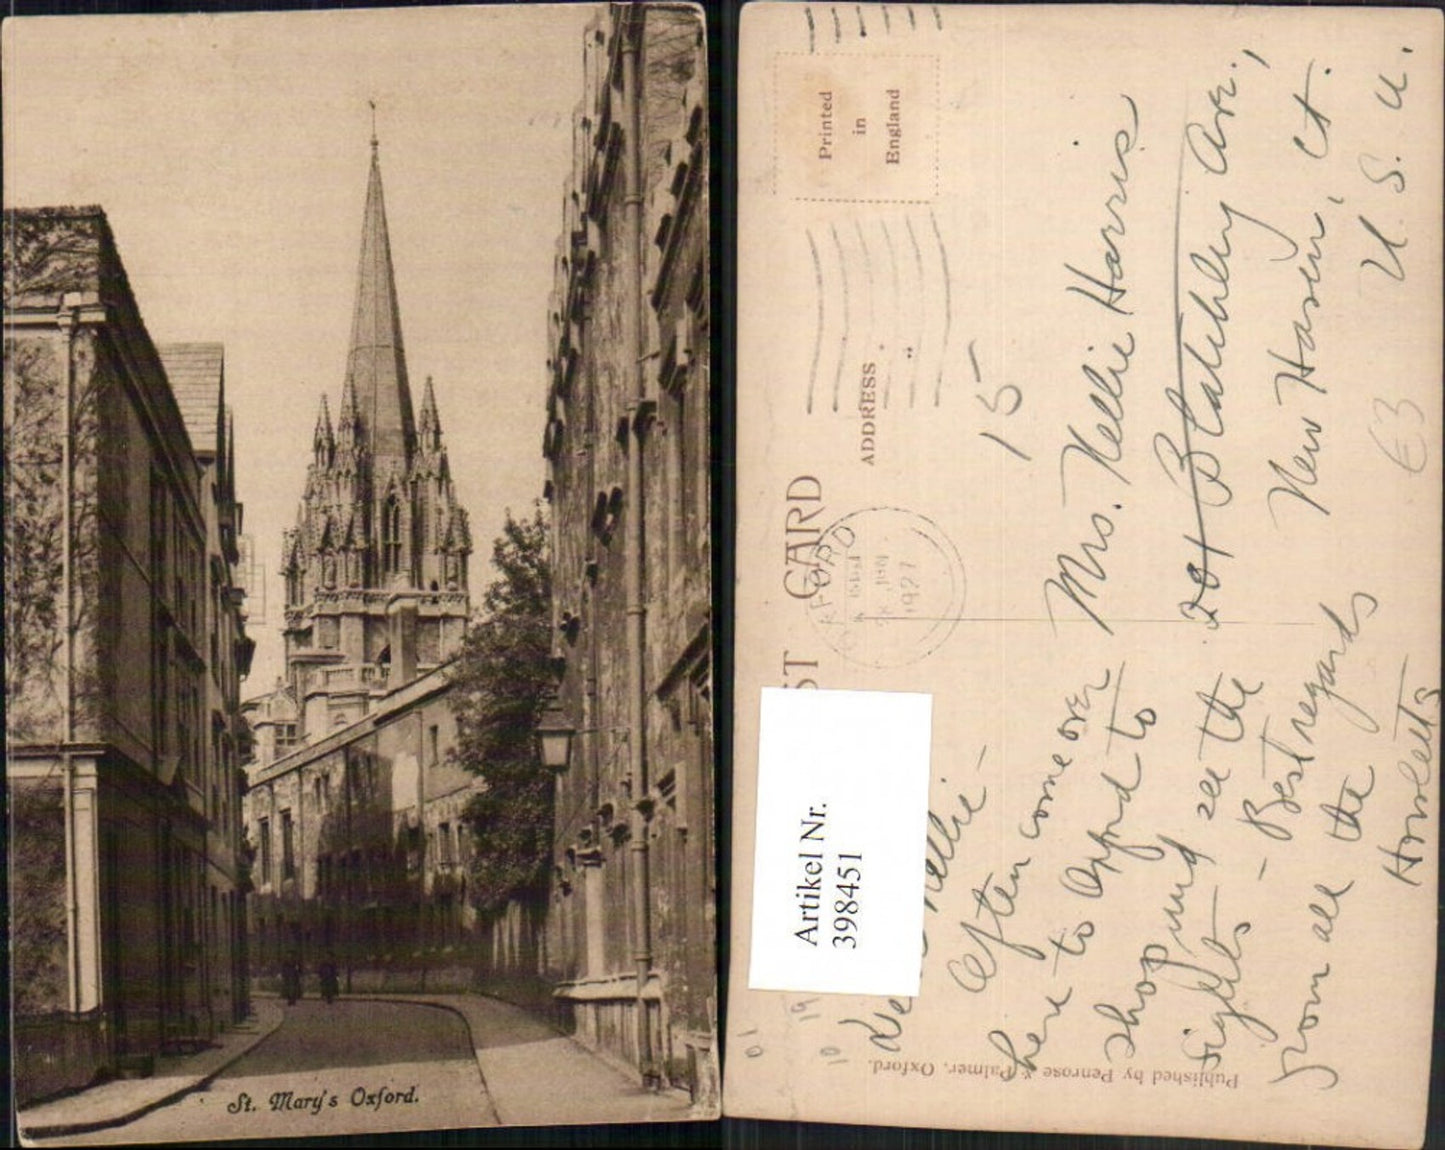 St. Mary's Oxford.
POST CARD
Printed
in
England
ADDRESS
OXFORD
JUN
1927
15
Artikel Nr.
398451
Dear Nellie -
Often come over
here to Oxford to
shop and see the
sights - Best regards
from all the
Howletts
Mrs. Nellie Harris
201 Blatchley Ave.,
New Haven, Ct.
U. S. A.
€3
Published by Penrose & Palmer, Oxford.
01
10 19